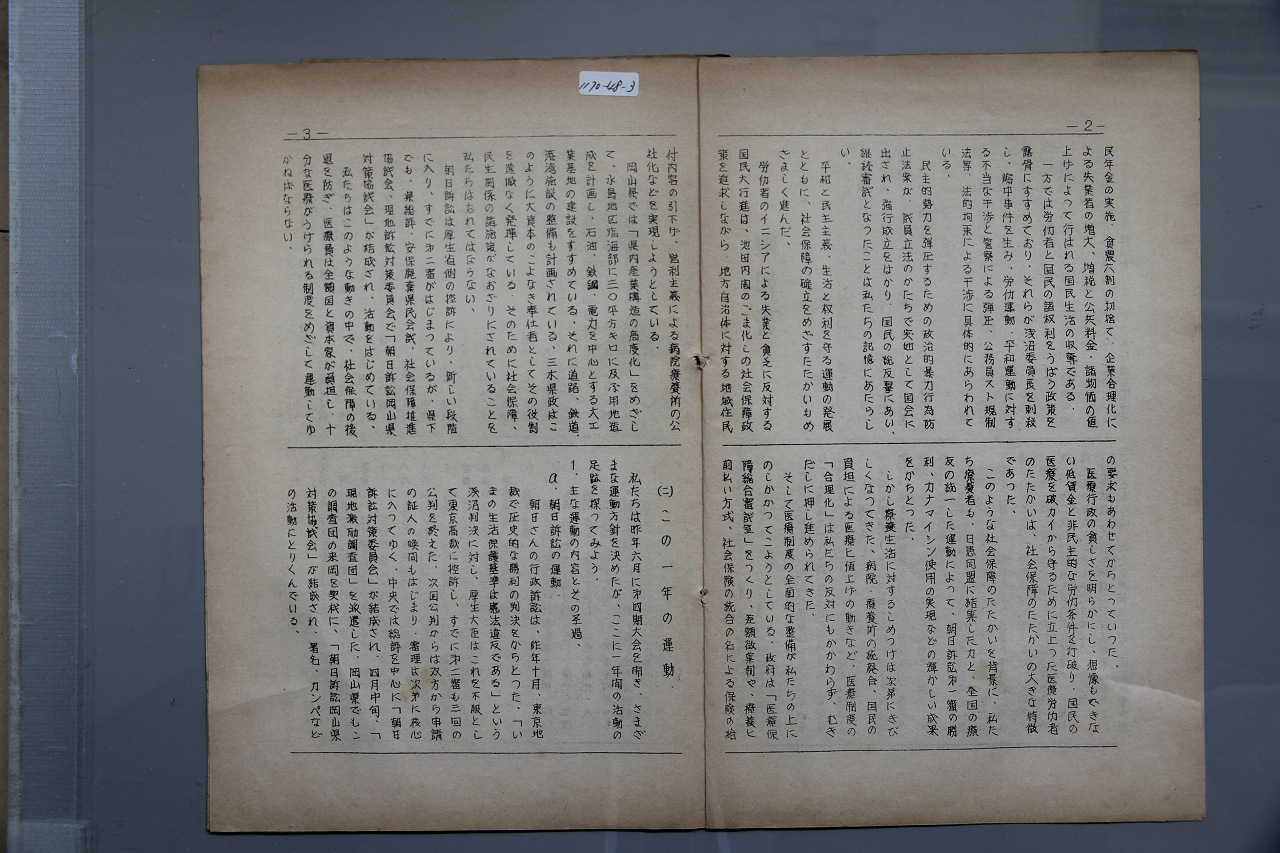 1170-48-3
－2－
民年金の実施、食管六割の切捨て、企業合理化に
よる失業者の増大、増税と公共料金・諸物価の値
上げによって行はれる国民生活の収奪である。
一方では労仂者と国民の諸权利をうばう政策を
露骨にすすめており、それらが浅沼委員長を刺殺
し、嶋中事件を生み、労仂運動、平和運動に対す
る不当な干渉と警察による弾圧、公務員スト規制
法等、法的拘束による干渉に具体的にあらわれて
いる。
民主的勢力を弾圧するための政治的暴力行為防
止法案が、議員立法のかたちで突如として国会に
出され、強行成立をはかり、国民の総反撃にあい、
継続審議となつたことは私たちの記憶にあたらし
い。
平和と民主主義、生活と权利を守る運動の発展
とともに、社会保障の確立をめざすたたかいもめ
ざましく進んだ。
労仂者のイニシアによる失業と貧乏に反対する
国民大行進は、池田内閣のごま化しの社会保障政
策を追求しながら、地方自治体に対する地域住民
の要求もあわせてかちとっていつた。
医療行政の貧しさを明らかにし、想像もできな
い低賃金と非民主的な労仂条件を打破り、国民の
医療を破カイから守るために立上つた医療労仂者
のたたかいは、社会保障のたたかいの大きな特徴
であった。
このような社会保障のたたかいを背景に、私た
ち療養者も、日患同盟に結集した力と、全国の療
友の統一した運動によって、朝日訴訟第一審の勝
利、カナマイシン使用の実現などの輝かしい成果
をかちとった。
しかし療養生活に対するしめつけは次第にきび
しくなつてきた。病院・療養所の統廃合、国民の
負担による医療ヒ値上げの動きなど、医療制度の
「合理化」は私たちの反対にもかかわらず、むき
だしに押し進められてきた。
そして医療制度の全面的な整備が私たちの上に
のしかかつてこようとしている。政府は「医療保
障総合審議室」をつくり、差額徴集制や、療養ヒ
前払い方式、社会保険の統合の名による保険の給
－3－
付内容の引下げ、営利主義による病院療養所の公
社化などを実現しようとしている。
岡山県では「県内産業構造の高度化」をめざし
て、水島地区臨海部に三〇平方キロに及ぶ用地造
成を計画し、石油、鉄鋼、電力を中心とする大工
業基地の建設をすすめている。それに道路、鉄道、
港湾施設の整備も計画されている。三木県政はこ
のように大資本のこよなき奉仕者としてその役割
を遺憾なく発揮している。そのために社会保障、
民生関係の諸施策がなおざりにされていることを
私たちは忘れてはならない。
朝日訴訟は厚生省側の控訴により、新しい段階
に入り、すでに第二審がはじまつているが、県下
でも、県総評、安保廃棄県民会議、社会保障推進
協議会、現地訴訟対策委員会で「朝日訴訟岡山県
対策協議会」が結成され、活動をはじめている。
私たちはこのような動きの中で、社会保障の後
退を防ぎ、医療費は全額国と資本家が負担し、十
分な医療がうけられる制度をめざして運動してゆ
かねばならない。
(二) この一年の運動
私たちは昨年六月に第四期大会を開き、さまざ
まな運動方針を決めたが、ここに一年間の活動の
足跡を探ってみよう。
1. 主な運動の内容とその経過、
a. 朝日訴訟の運動、
朝日さんの行政訴訟は、昨年十月、東京地
裁で歴史的な勝利の判決をかちとった。「い
まの生活保護基準は憲法違反である」という
浅沼判決に対し、厚生大臣はこれを不服とし
て東京高裁に控訴し、すでに第二審も三回の
公判を終えた。次回公判からは双方から申請
の証人の喚問もはじまり、審理は次第に核心
に入ってゆく。中央では総評を中心に「朝日
訴訟対策委員会」が結成され、四月中旬、「
現地激励調査団」を派遣した。岡山県でもこ
の調査団の来岡を契機に、「朝日訴訟岡山県
対策協議会」が結成され、署名、カンパなど
の活動にとりくんでいる。